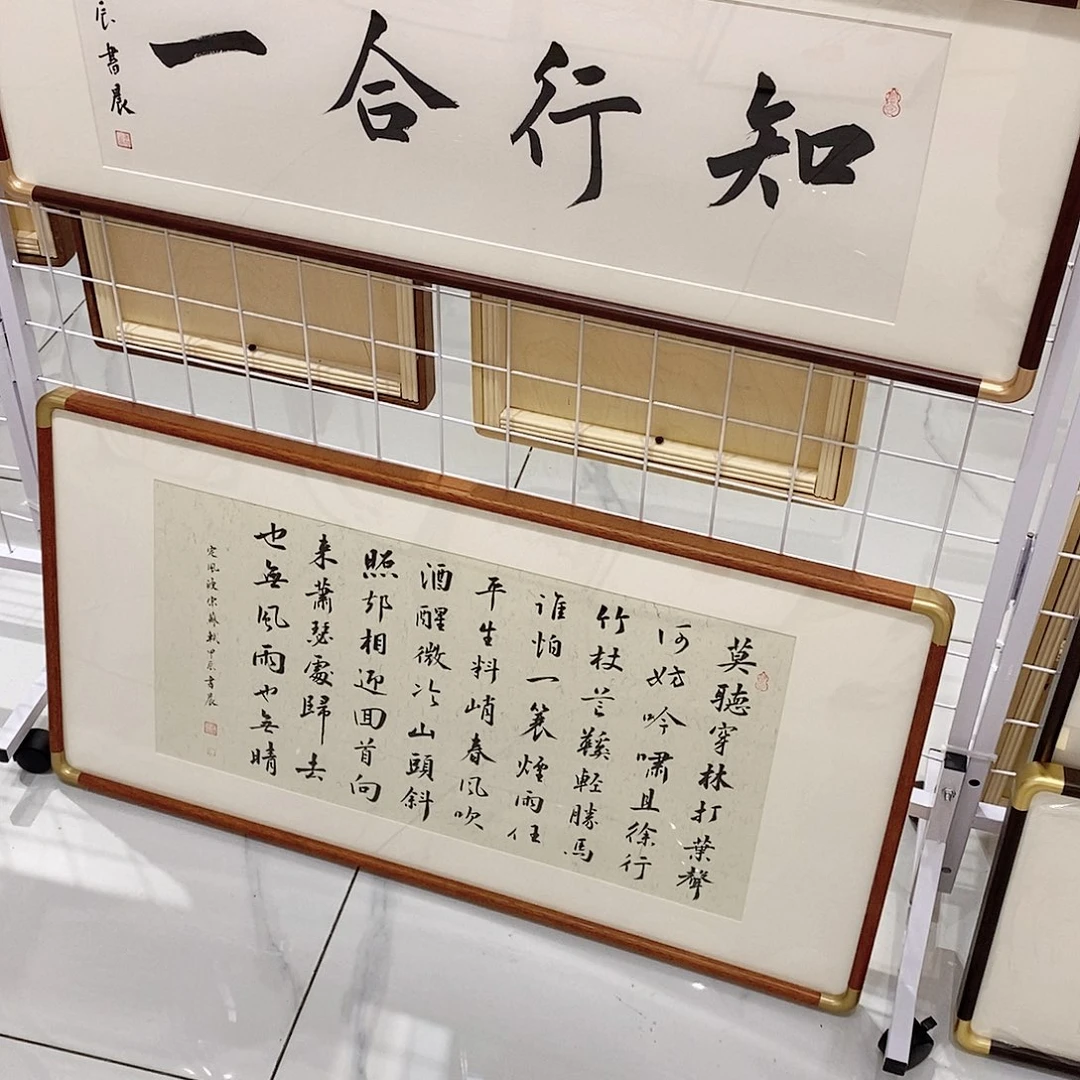 知行合一
辰書晨
莫聽穿林打葉聲
何妨吟嘯且徐行
竹杖芒鞵輕勝馬
誰怕一蓑煙雨任
平生料峭春風吹
酒醒微冷山頭斜
照却相迎回首向
来蕭瑟處歸去
也無風雨也無晴
定風波宋蘇軾甲辰書晨